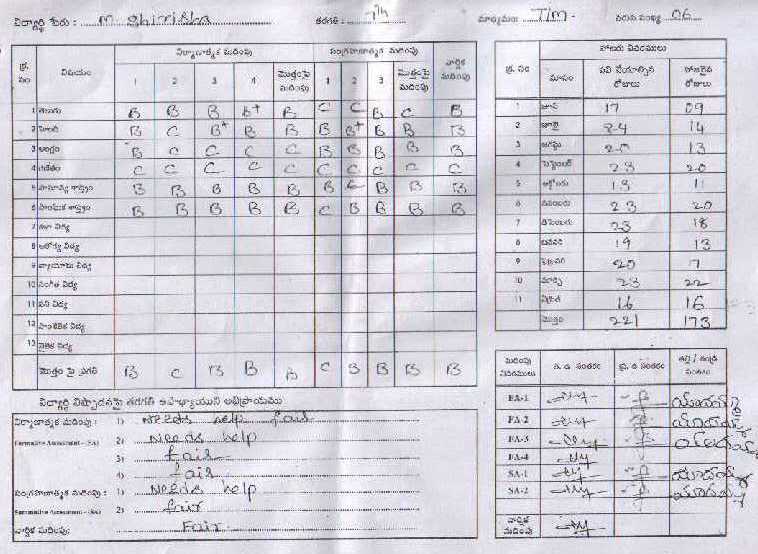 విద్యార్థి పేరు : M. Shirisha తరగతి : 7th మాధ్యమం : T/m వరుస సంఖ్య 06
నిర్మాణాత్మక మదింపు సంగ్రహణాత్మక మదింపు వార్షిక మదింపు
క్ర. సం విషయం 1 2 3 4 మొత్తంపై మదింపు 1 2 3 మొత్తంపై మదింపు
1 తెలుగు B B B B+ B C C B C B
2 హిందీ B C B+ B B B B+ B B B
3 ఆంగ్లం B C C C C B B B B B
4 గణితం C C C C C C C C C C
5 సామాన్య శాస్త్రం B B B B B B C B B B
6 సాంఘిక శాస్త్రం B B B B B C B B B B
7 కళా విద్య
8 ఆరోగ్య విద్య
9 వ్యాయామ విద్య
10 సంగీత విద్య
11 పని విద్య
12 సాంకేతిక విద్య
13 నైతిక విద్య
మొత్తం పై ప్రగతి B C B B B C B B B B
హాజరు వివరములు
క్ర. సం మాసం పని చేయాల్సిన రోజులు హాజరైన రోజులు
1 జూన్ 17 09
2 జూలై 24 14
3 ఆగష్టు 20 13
4 సెప్టెంబర్ 23 20
5 అక్టోబరు 13 11
6 నవంబరు 23 20
7 డిసెంబరు 23 18
8 జనవరి 19 13
9 ఫిబ్రవరి 20 17
10 మార్చి 23 22
11 ఏప్రిల్ 16 16
మొత్తం 221 173
విద్యార్థి నిష్పాదనపై తరగతి ఉపాధ్యాయుని అభిప్రాయము
నిర్మాణాత్మక మదింపు : 1) Needs help fair
Formative Assessment - (FA) 2) Needs help
3) fair
4) fair
సంగ్రహణాత్మక మదింపు : 1) Needs help
Summative Assessment - (SA) 2) fair
వార్షిక మదింపు: Fair
మదింపు వివరములు త. ఉ. సంతకం ప్ర. ఉ సంతకం తల్లి / తండ్రి సంతకం
FA-1
FA-2
FA-3
FA-4
SA-1
SA-2
వార్షిక మదింపు